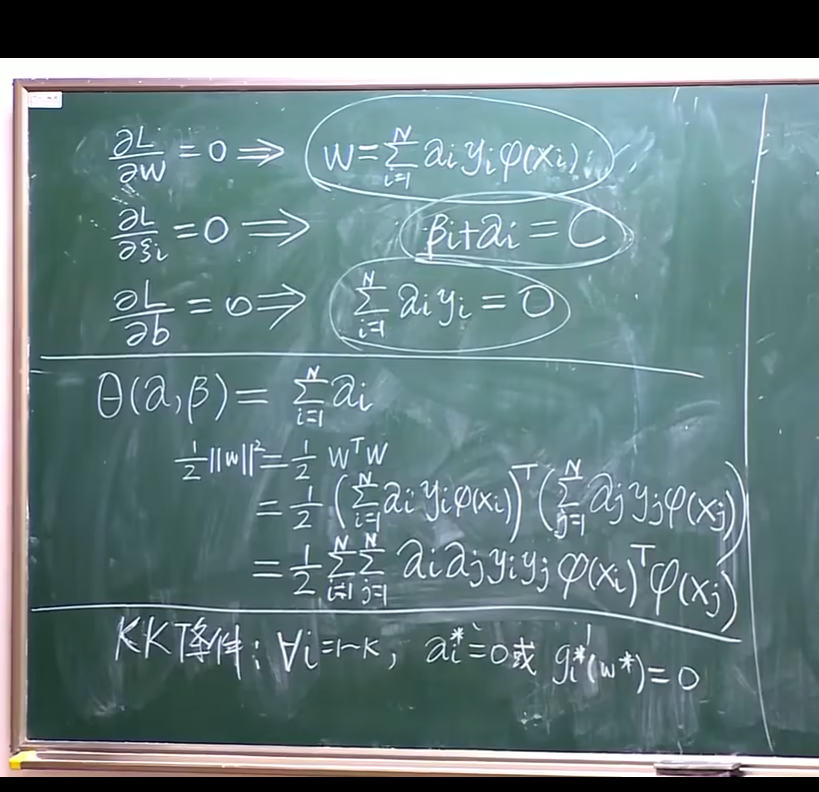 ∂L/∂w = 0 ⇒ w = ∑_{i=1}^{N} α_i y_i φ(x_i)
∂L/∂ξ_i = 0 ⇒ β_i + α_i = C
∂L/∂b = 0 ⇒ ∑_{i=1}^{N} α_i y_i = 0
θ(α,β) = ∑_{i=1}^{N} α_i
1/2 ||w||² = 1/2 w^T w
= 1/2 (∑_{i=1}^{N} α_i y_i φ(x_i))^T (∑_{j=1}^{N} α_j y_j φ(x_j))
= 1/2 ∑_{i=1}^{N} ∑_{j=1}^{N} α_i α_j y_i y_j φ(x_i)^T φ(x_j)
KKT条件: ∀i=1~K, α_i^* = 0 或 g_i^*(w^*) = 0